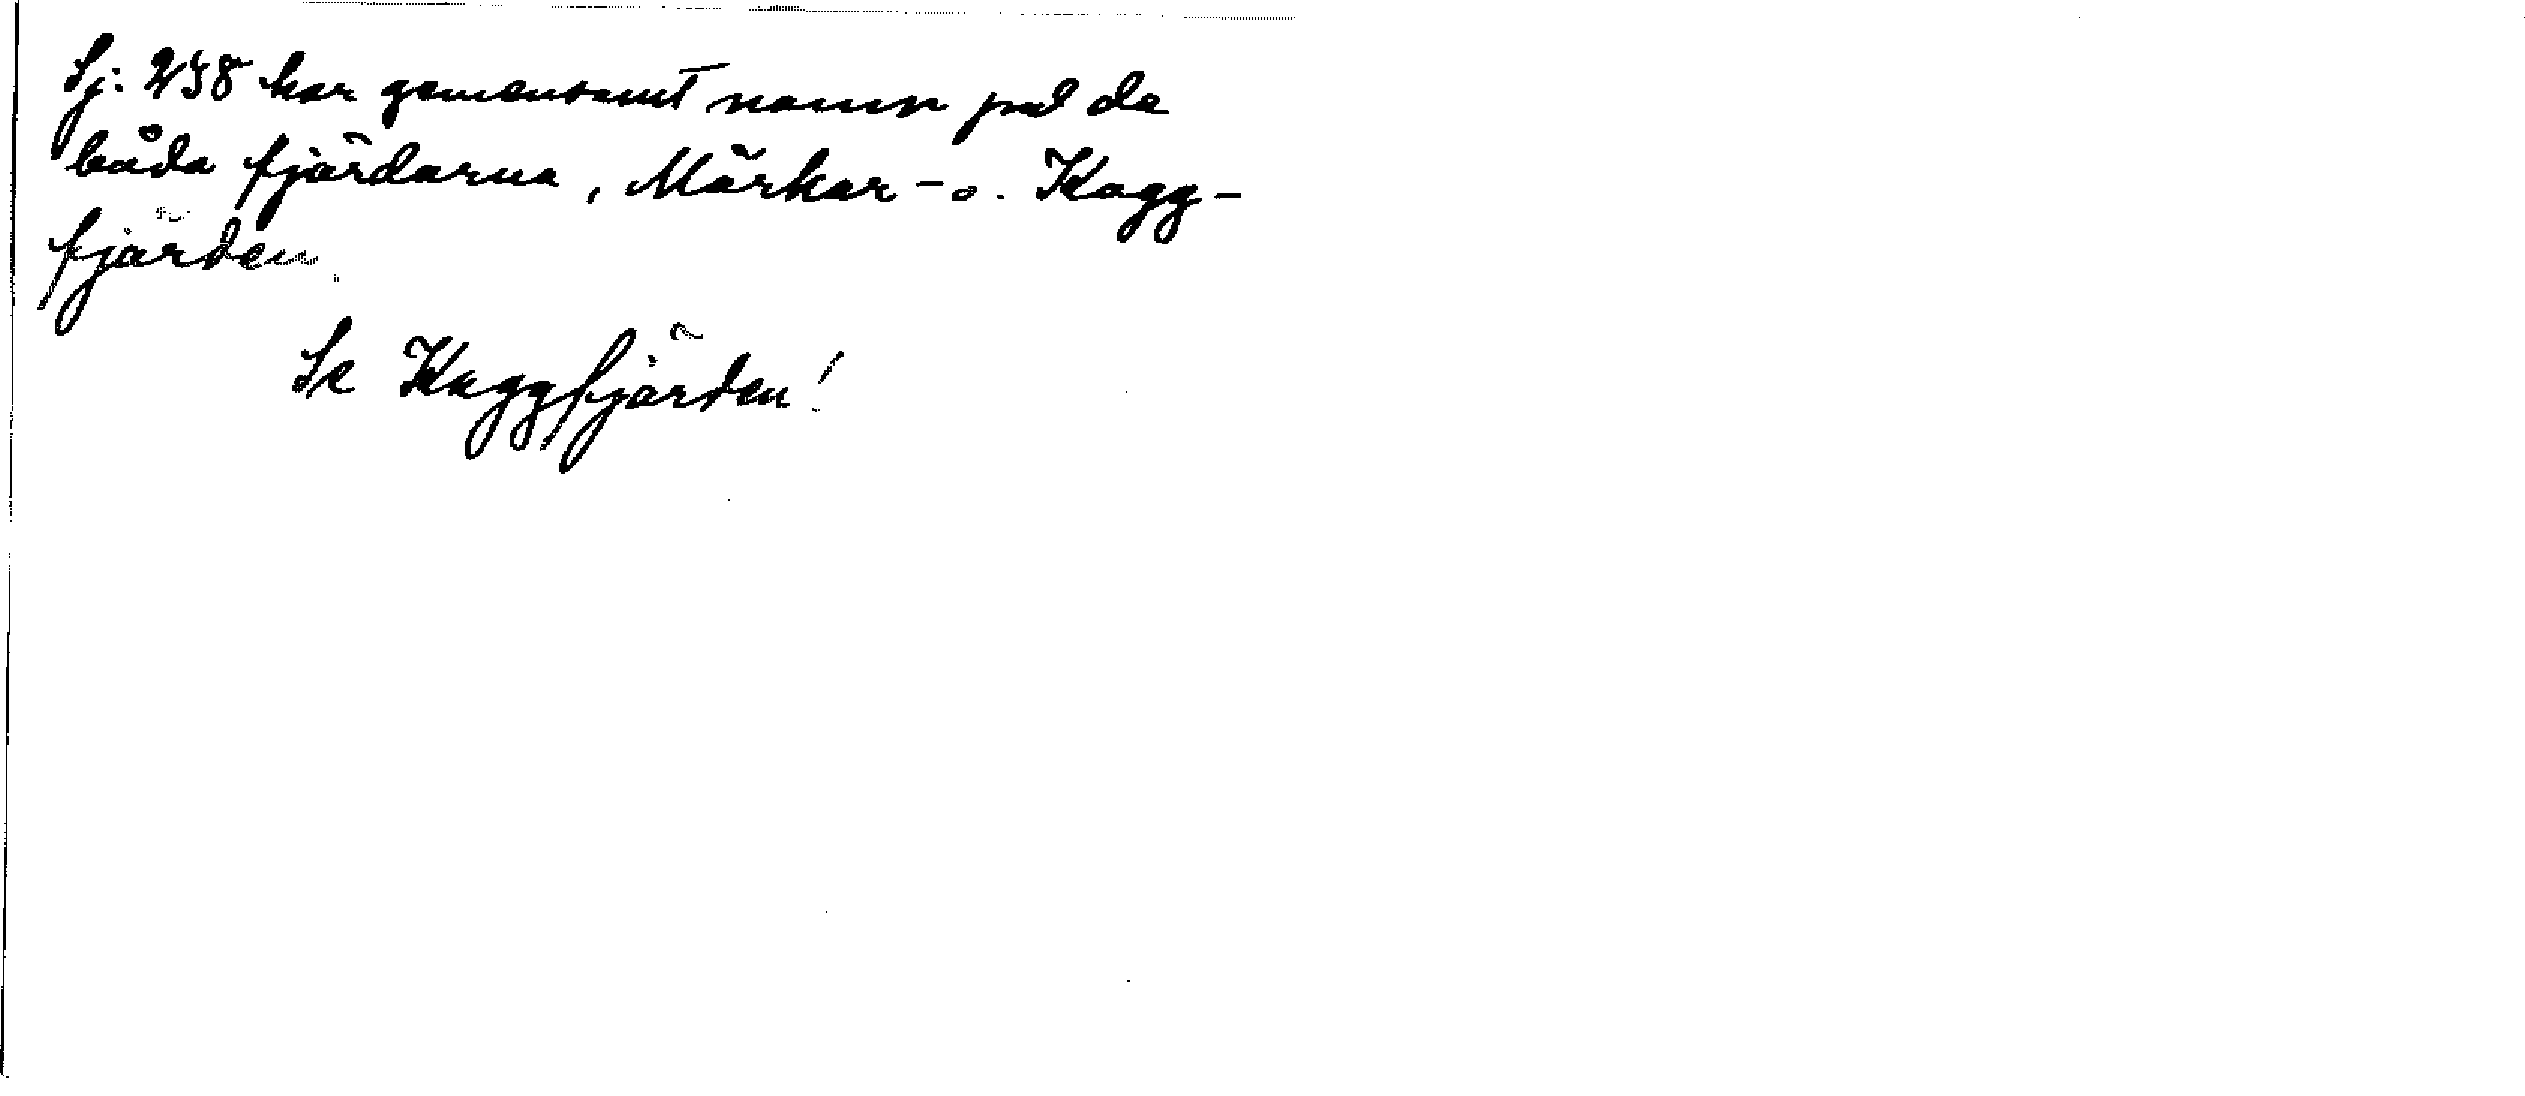 Sj: 238 har gemensamt namn på de
båda fjärdarna, Märkar- o. Kagg-
fjärden.
Se Kaggfjärden!